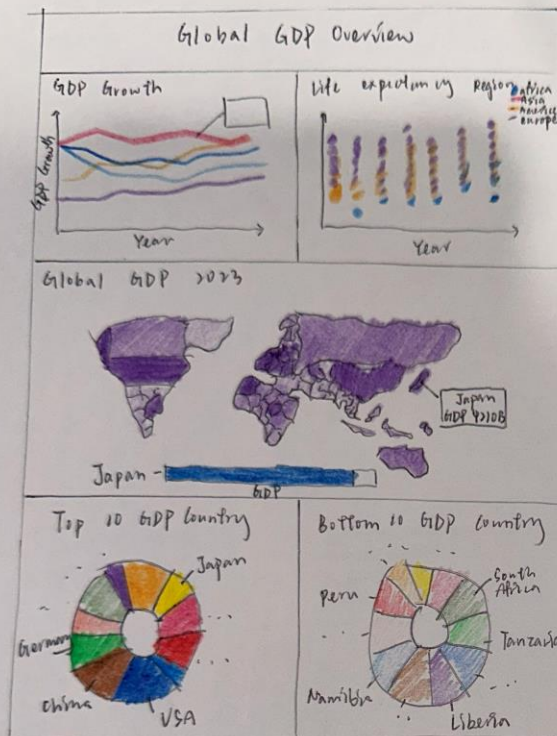 Global GDP Overview
GDP Growth
GDP Growth
Year
Life expectancy Region
africa
Asia
America
europe
Year
Global GDP 2023
Japan
GDP 4210B
Japan
GDP
Top 10 GDP Country
Japan
Germany
China
USA
Bottom 10 GDP Country
Peru
South
Africa
Tanzania
Namibia
Liberia